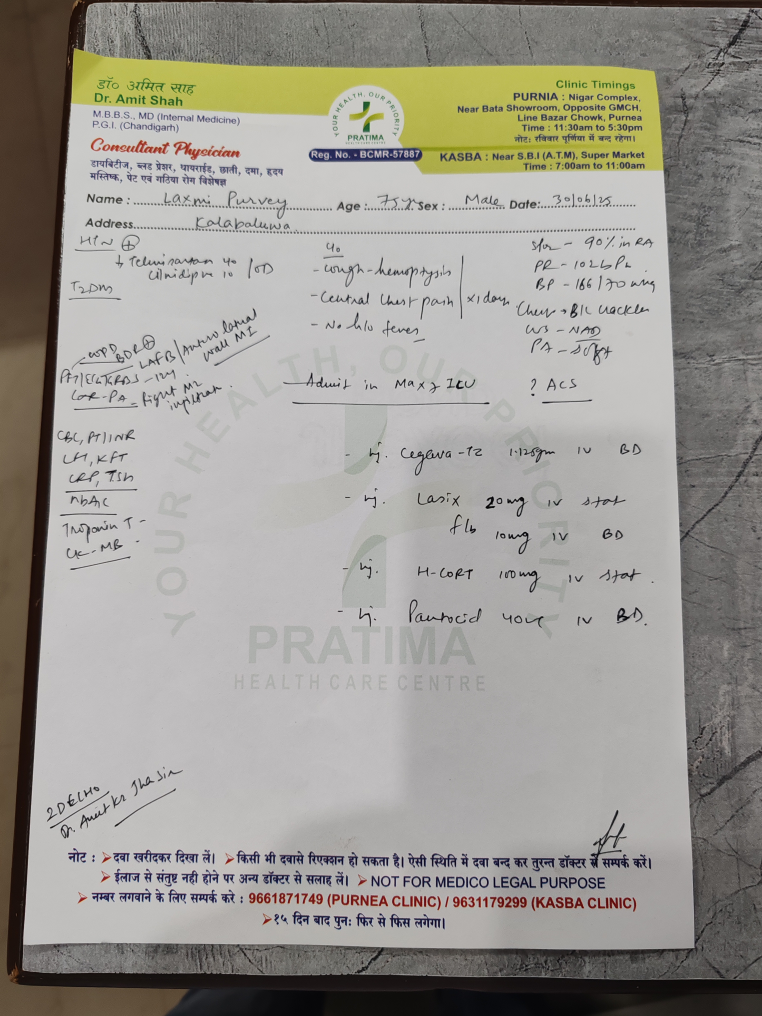 डॉ० अमित साह
Dr. Amit Shah
M.B.B.S., MD (Internal Medicine)
P.G.I. (Chandigarh)
Consultant Physician
डायबिटीज, ब्लड प्रेशर, थायराईड, छाती, दमा, हृदय
मस्तिष्क, पेट एवं गठिया रोग विशेषज्ञ
YOUR HEALTH, OUR PRIORITY
PRATIMA
HEALTH CARE CENTRE
Reg. No. - BCMR-57887
Clinic Timings
PURNIA : Nigar Complex,
Near Bata Showroom, Opposite GMCH,
Line Bazar Chowk, Purnea
Time : 11:30am to 5:30pm
नोट: रविवार पूर्णिया में बन्द रहेगा।
KASBA : Near S.B.I (A.T.M), Super Market
Time : 7:00am to 11:00am
Name : Laxmi Purvey Age : 75yr Sex : Male Date: 30/06/25
Address Kalabaluwa
HTN +
Telmisartan 40
Cilnidipin 10 / OD
T2DM
c/o
- Cough - hemoptysis
- Central Chest pain x1 days
- No h/o fever
- 90% in RA
PR - 102 bpm
BP - 166/70 mmHg
Chest B/L crackles
CVS - NAD
PA - soft
BDR +
LAFB / Antero lateral
wall MI
CXR-PA - Right MZ
infiltration
Admit in Max 7 ICU
? ACS
CBC, PT/INR
LFT, KFT
CRP, TSH
HbA1C
Troponin T -
CK-MB -
- Inj. 1.125gm IV BD
- Inj. Lasix 20mg IV stat
f/b 10mg IV BD
- Inj. H-CORT 100mg IV stat.
- Inj. Pantocid 40 IV BD.
YOUR HEALTH, OUR PRIORITY
PRATIMA
HEALTH CARE CENTRE
2DECHO
नोट : ➤दवा खरीदकर दिखा लें। ➤किसी भी दवासे रिएक्शन हो सकता है। ऐसी स्थिति में दवा बन्द कर तुरन्त डॉक्टर से सम्पर्क करें।
➤ईलाज से संतुष्ट नही होने पर अन्य डॉक्टर से सलाह लें। ➤NOT FOR MEDICO LEGAL PURPOSE
➤नम्बर लगवाने के लिए सम्पर्क करे : 9661871749 (PURNEA CLINIC) / 9631179299 (KASBA CLINIC)
➤१५ दिन बाद पुन: फिर से फिस लगेगा।